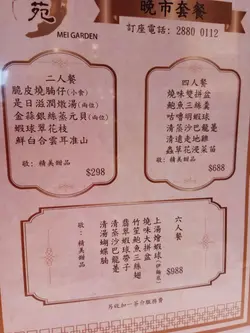 苑
MEI GARDEN
晚市套餐
訂座電話：2880 0112
二人餐
脆皮燒腩仔(小食)
是日滋潤燉湯(兩位)
金蒜銀絲蒸元貝(兩位)
蝦球翠花枝
鮮白合雲耳准山
敬：精美甜品
$298
四人餐
燒味雙拼盆
鮑魚三絲羹
咕嚕明蝦球
清蒸沙巴龍躉
清遠走地雞
蟲草花浸菜苗
敬：精美甜品
$688
六人餐
上湯焗蝦球(伊麵底)
燒味大拼盆
竹笙鮑魚三絲翅
翡翠蝦球帶子
清蒸沙巴龍躉
清湯蝴蝶腩
敬：精美甜品
$988
另收加一茶介飯前費